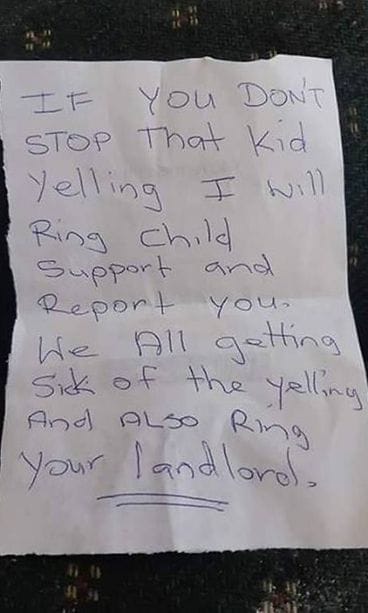 IF YOU DON'T
STOP That Kid
Yelling I will
Ring Child
Support and
Report you.
We All getting
Sick of the yelling
And ALSO Ring
your landlord.